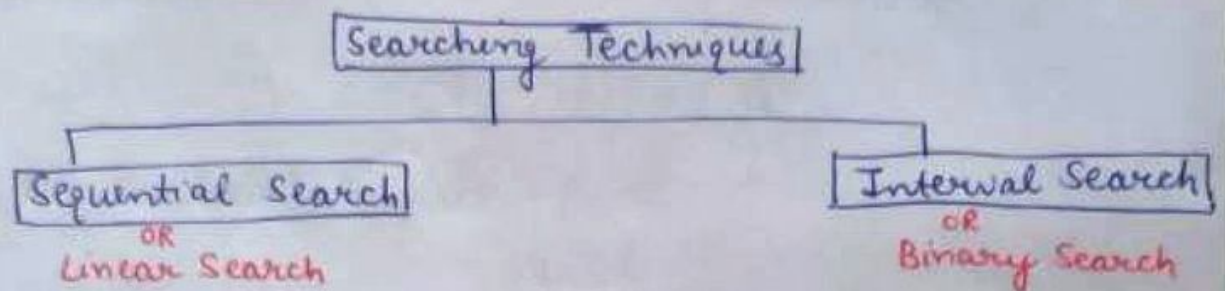 Searching Techniques
Sequential Search
OR
Linear Search
Interval Search
OR
Binary Search